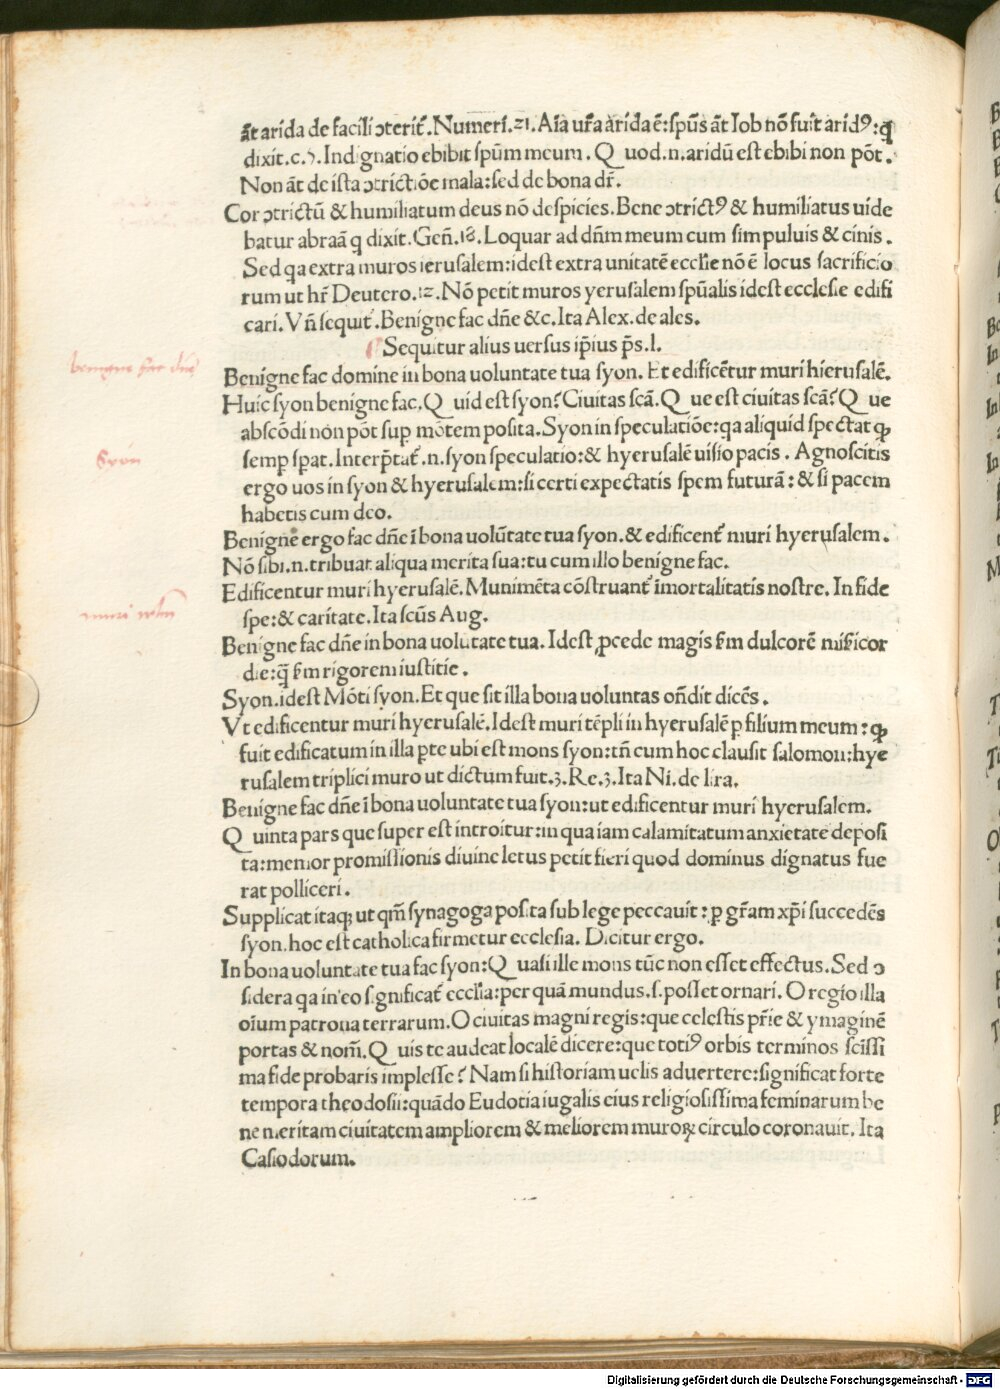 āt arida de facili ɔterit᷑. Numeri.21. Aīa ur̄a arida ē: sp̄us āt Iob nō fuit aridꝰ: q̄
dixit.c.5. Indignatio ebibit sp̄um meum. Quod.n. aridū est ebibi non pōt.
Non āt de ista ɔtrictiōe mala: sed de bona dr̄.
Cor ɔtrictū & humiliatum deus nō despicies. Bene ɔtrictꝰ & humiliatus uide
batur abraā q dixit. Geñ.18. Loquar ad dn̄m meum cum sim puluis & cinis.
Sed qa extra muros ierusalem: idest extra unitatē ecclīe nō ē locus sacrificio
rum ut hr̄ Deutero.12. Nō petit muros yerusalem sp̄ualis idest ecclesie edifi
cari. Vn̄ sequit᷑. Benigne fac dn̄e &c. Ita Alex. de ales.
Sequitur alius uersus ip̄ius p̄s.l.
Benigne fac domine in bona uoluntate tua syon. Et edificētur muri hierusalē.
benigne fac dn̄e
Huic syon benigne fac. Quid est syon? Ciuitas scā. Que est ciuitas scā? Que
abscōdi non pōt sup mōtem posita. Syon in speculatiōe: qa aliquid spectat qꝫ
semp spat. Interp̄tat᷑.n. syon speculatio: & hyerusalē uisio pacis. Agnoscitis
Syon
ergo uos in syon & hyerusalem: si certi expectatis spem futurā: & si pacem
habetis cum deo.
Benigne ergo fac dn̄e ī bona uolūtate tua syon. & edificent᷑ muri hyerusalem.
Nō sibi.n. tribuat aliqua merita sua: tu cum illo benigne fac.
Edificentur muri hyerusalē. Munimēta cōstruant᷑ īmortalitatis nostre. In fide
spe: & caritate. Ita scūs Aug.
muri
Benigne fac dn̄e in bona uolutate tua. Idest ꝓcede magis ẜm dulcorē mīẜicor
die: q̄ ẜm rigorem iustitie.
Syon. idest Mōti syon. Et que sit illa bona uoluntas on̄dit dicēs.
Vt edificentur muri hyerusalē. Idest muri tēpli in hyerusalē ꝑ filium meum: qꝫ
fuit edificatum in illa ꝑte ubi est mons syon: tn̄ cum hoc clausit salomon: hye
rusalem triplici muro ut dictum fuit.3. Re.3. Ita Ni. de lira.
Benigne fac dn̄e ī bona uoluntate tua syon: ut edificentur muri hyerusalem.
Quinta pars que super est introitur: in qua iam calamitatum anxietate deposi
ta: memor promissionis diuine letus petit fieri quod dominus dignatus fue
rat polliceri.
Supplicat itaqꝫ ut qm̄ synagoga posita sub lege peccauit: ꝑ gr̄am xp̄i succedēs
syon. hoc est catholica firmetur ecclesia. Dicitur ergo.
In bona uoluntate tua fac syon: Quasi ille mons tūc non esset effectus. Sed ɔ
sidera qa in eo significat᷑ ecclīa: per quā mundus.s. posset ornari. O regio illa
oīum patrona terrarum. O ciuitas magni regis: que celestis pr̄ie & ymaginē
portas & nom̄. Quis te audeat localē dicere: que totiꝰ orbis terminos scissi
ma fide probaris implesse? Nam si historiam uelis aduertere: significat forte
tempora theodosii: quādo Eudotia iugalis eius religiosissima feminarum be
ne meritam ciuitatem ampliorem & meliorem muroꝝ circulo coronauit. Ita
Casiodorum.
Digitalisierung gefördert durch die Deutsche Forschungsgemeinschaft - DFG